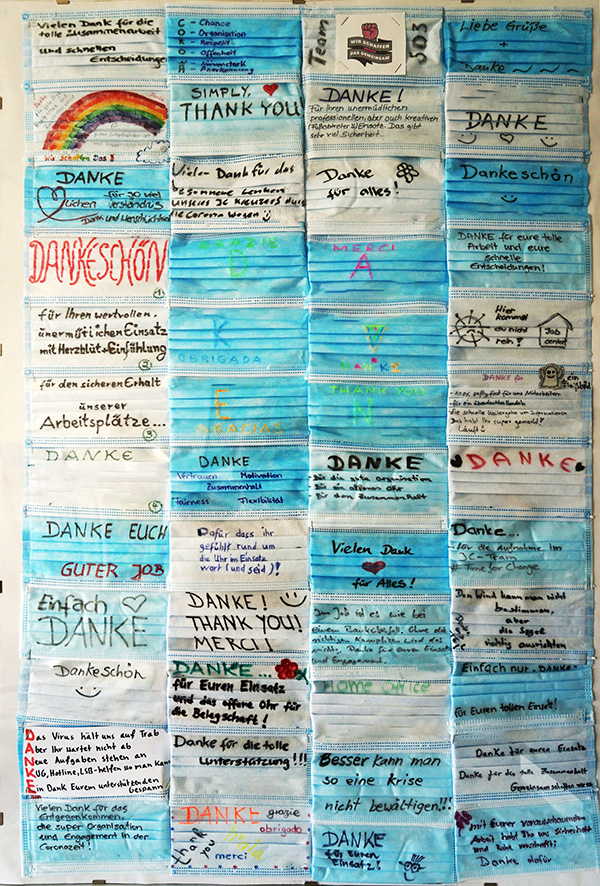 Vielen Dank für die
tolle Zusammenarbeit
und schnellen
Entscheidungen
C - Chance
O - Organisation
R - Respekt
O - Offenheit
N -
A - Anerkennung
Team
WIR SCHAFFEN
DAS GEMEINSAM
503
Liebe Grüße
+
Danke
Wir schaffen Das!
SIMPLY,
THANK YOU
DANKE!
Für Ihren unermüdlichen
professionellen, aber auch kreativen
(Fußabtreter) Einsatz. Das gibt
sehr viel Sicherheit..
DANKE
DANKE
für so viel
Verständnis
Vielen Dank für das
besonnene Lenken
unseres JC Kreuzers durch
die Corona Wogen
Danke
für alles!
Dankeschön
DANKESCHÖN
1
GRAZIE
D
MERCI
A
DANKE für eure tolle
Arbeit und eure
schnelle
Entscheidungen!
für Ihren wertvollen,
unermütlichen Einsatz
mit Herzblut + Einfühlung
2
K
OBRIGADA
DANKE
Hier
kommst
du nicht
rein!
Job
center
für den sicheren Erhalt
unserer
Arbeitsplätze...
3
E
GRACIAS
THANK YOU
N
DANKE für
für uns Mitarbeitern
die schnelle
Das habt Ihr super gemacht!
Läuft
DANKE
4
DANKE
Vertrauen Motivation
Zusammenhalt
Fairness Flexibilität
DANKE
für die gute Organisation
für den Zusammenhalt
DANKE
DANKE EUCH
GUTER JOB
Dafür dass ihr
gefühlt rund um
die Uhr im Einsatz
wart (und seid)!
Vielen Dank
für Alles!
Danke...
für die Aufnahme im
JC-Team
# Time for Change
Einfach
DANKE
DANKE!
THANK YOU!
MERCI!
Im Job ist es wie bei
einem
richtigen Komplizen wird das
nichts. Danke für euren Einsatz
und Engagement.
Den Wind kann man nicht
bestimmen,
aber
die Segel
richtig ausrichten
Dankeschön
DANKE...
für Euren Einsatz
und das offene Ohr für
die Belegschaft!
Home Office
Einfach nur DANKE
für Euren tollen Einsatz!
Das Virus hält uns auf Trab
Aber Ihr wartet nicht ab
Neue Aufgaben stehen an
KUG, Hotline, LSB - helfen so man kann
Ein Dank Eurem unterstützenden
Gespann
Danke für die tolle
Unterstützung!!!
Besser kann man
so eine Krise
nicht bewältigen!!!
Danke für euren Einsatz
Danke für die tolle Zusammenarbeit
Gemeinsam schaffen wir das
Vielen Dank für das
Entgegenkommen,
die super Organisation
und Engagement in der
Coronazeit!
DANKE
grazie
obrigado
thank
you
merci
DANKE
für euren
Einsatz!
mit Eurer vorausschauenden
Arbeit habt Ihr uns Sicherheit
und Ruhe verschafft!
Danke dafür